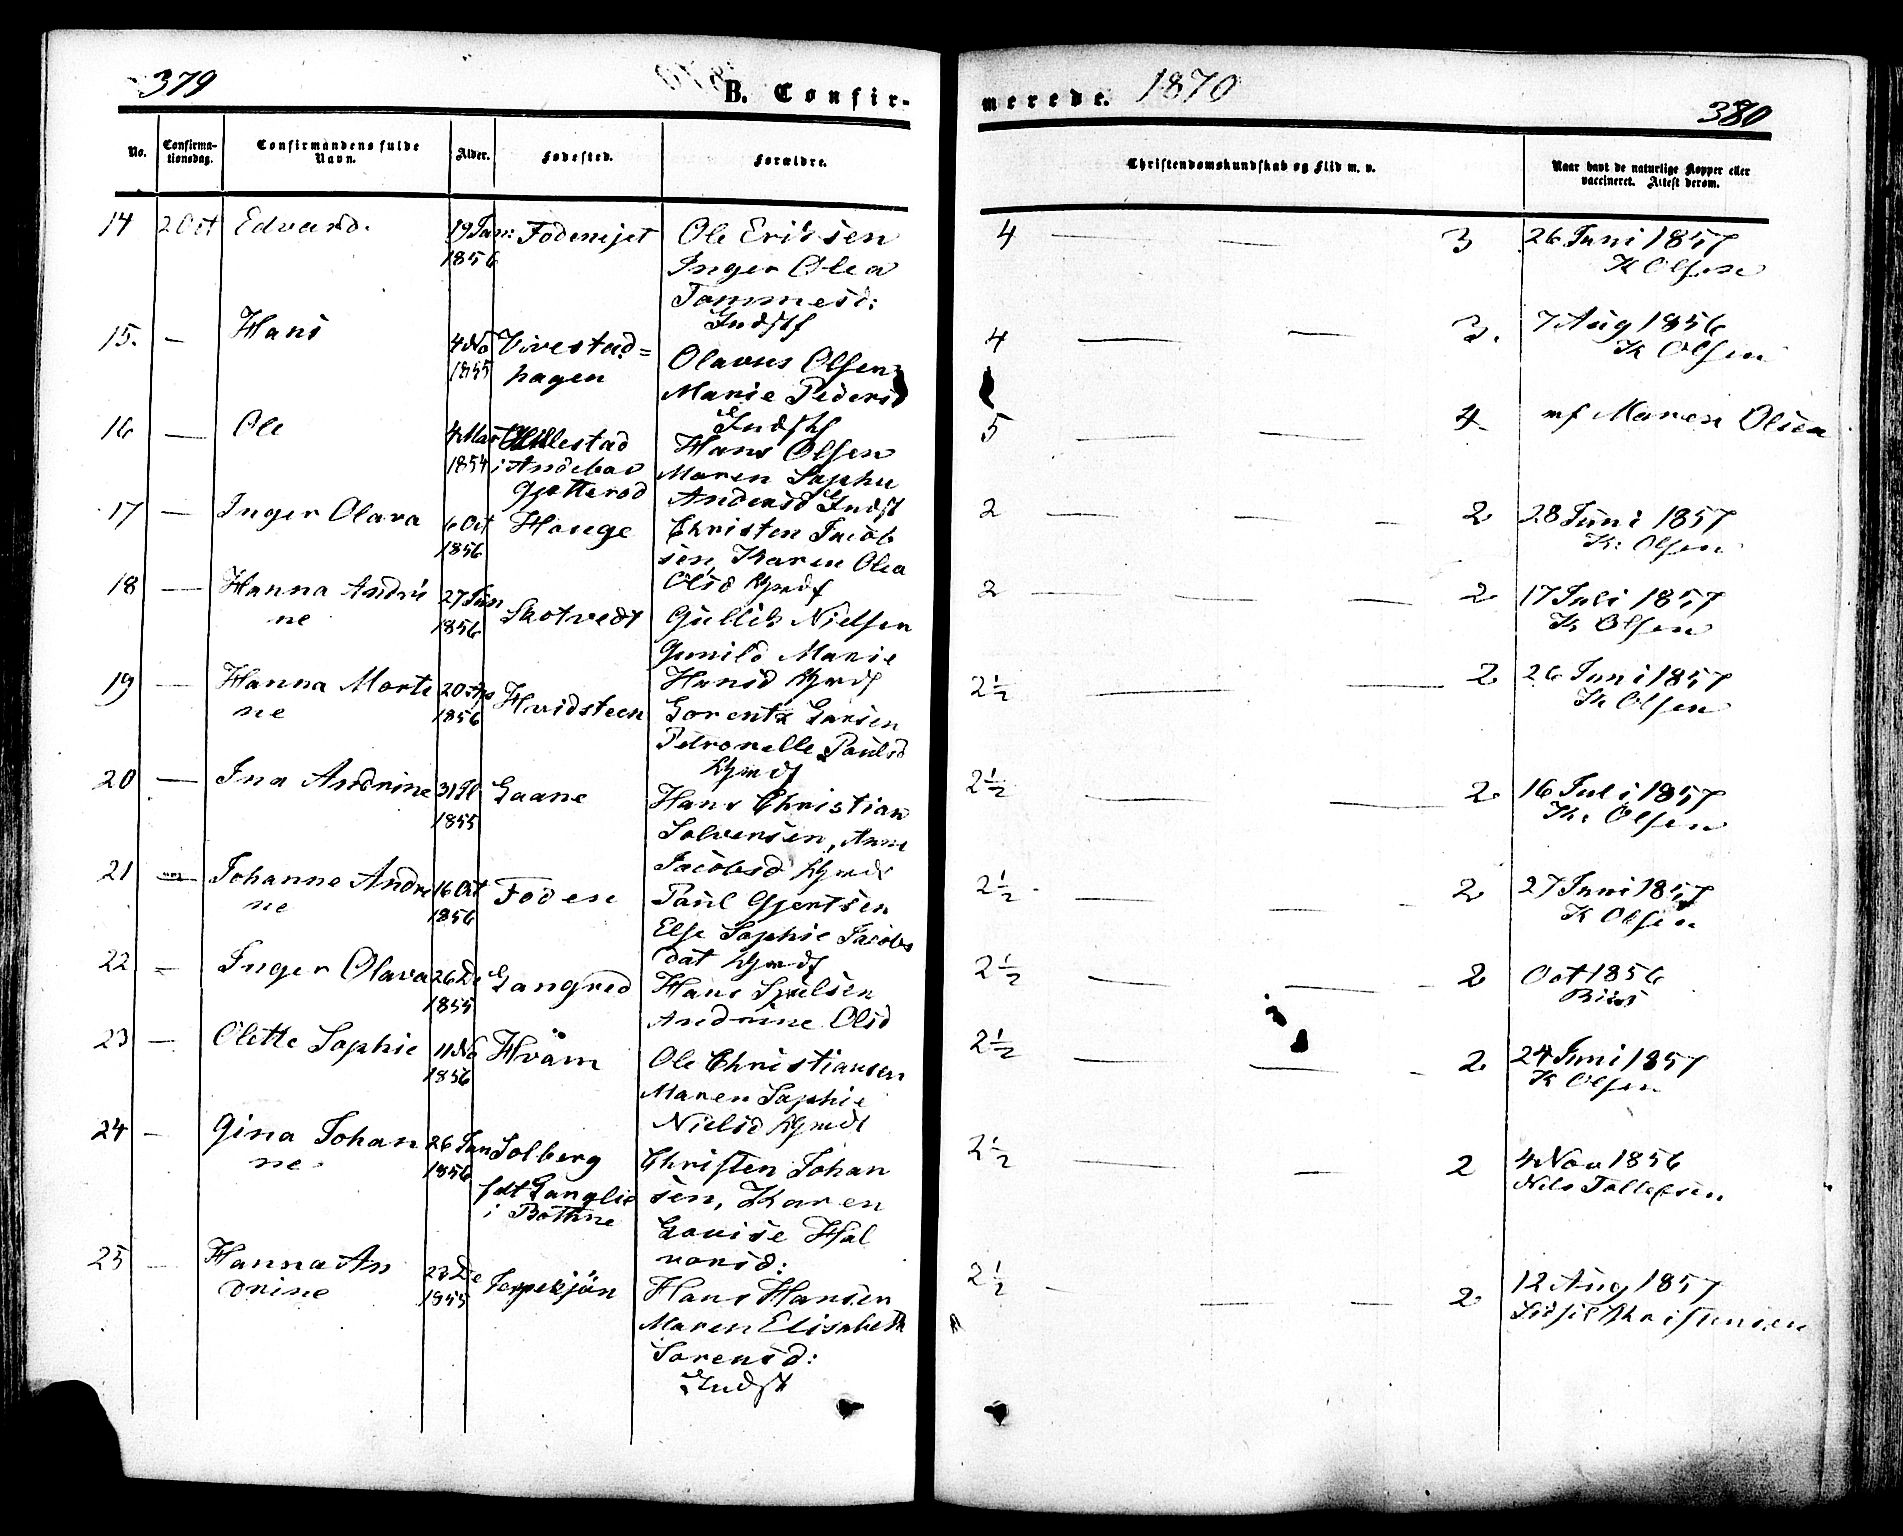 379
B. Confir-
No.
Confirma-
tionsdag.
Confirmandens fulde
Navn.
Alder.
Fødested.
Forældre.
14
2 Oct
Edvard.
19 Jan:
1856
Fodenejet
Ole Erissen
Inger Olea
Tommesd:
Indst
15.
—
Hans
4 No
1855
Vivestad=
hagen
Olavus Olsen
Marie Pedersd
Indst
16
—
Ole
4 Mar
1854
Hillestad
i Andebo
Gjetterød
Hans Olsen
Maren Sophie
Andersd Indst
17
—
Inger Olava
6 Oct
1856
Hauge
Christen Jacob
sen, Karen Olea
Olsd Gmdf
18
—
Hanna Andri
ne
27 Jun
1856
Skotvedt
Gullik Nielsen
Gunild Marie
Hansd Gmdf
19
—
Hanna Morte
ne
20 Ap
1856
Hvidsteen
Lorentz Larsen
Petronelle Paulsd
Gmdf
20
—
Ina Andrine
1855
Laane
Hans Christian
Solversen, Anne
Jacobsd Gmdf
21
—
Johanne Andri
ne
16 Oct
1856
Foden
Paul Gjertsen
Else Sophie Jacobs
dat Gmdf
22
—
Inger Olava
26 De
1855
Langrød
Hans
Andrine Olsd
23
—
Olette Sophie
11 No
1856
Hvam
Ole Christiansen
Maren Sophie
Nielsd Gmdf
24
—
Gina Johan
ne
26 Jan
1856
Solberg
fdt Langlie
i Bothne
Christen Johan
sen, Karen
Lovise Hal
vorsd:
25
—
Hanna An
drine
23 De
1855
Hans Hansen
Maren Elisabeth
Sorensd:
Indst
merede. 1870
380
Christendomskundskab og Flid m. v.
Naar havt de naturlige Kopper eller
vaccineret. Attest derom.
4 — — 3
26 Juni 1857
K Olsen
4 — — 3.
7 Aug 1856
K Olsen
5 — — 4
Maren Olsen
2 — — 2
28 Juni 1857
K: Olsen
2 — — 2
17 Juli 1857
K Olsen
2½ — — 2
26 Juni 1857
K Olsen
2½ — — 2
16 Juli 1857
K. Olsen
2½ — — 2
27 Juni 1857
K Olsen
2½ — — 2
Oct 1856
2½ — — 2
24 Juni 1857
K Olsen
2½ — — 2
4 Nov 1856
Nils Tollefsen
2½ — — 2
12 Aug 1857